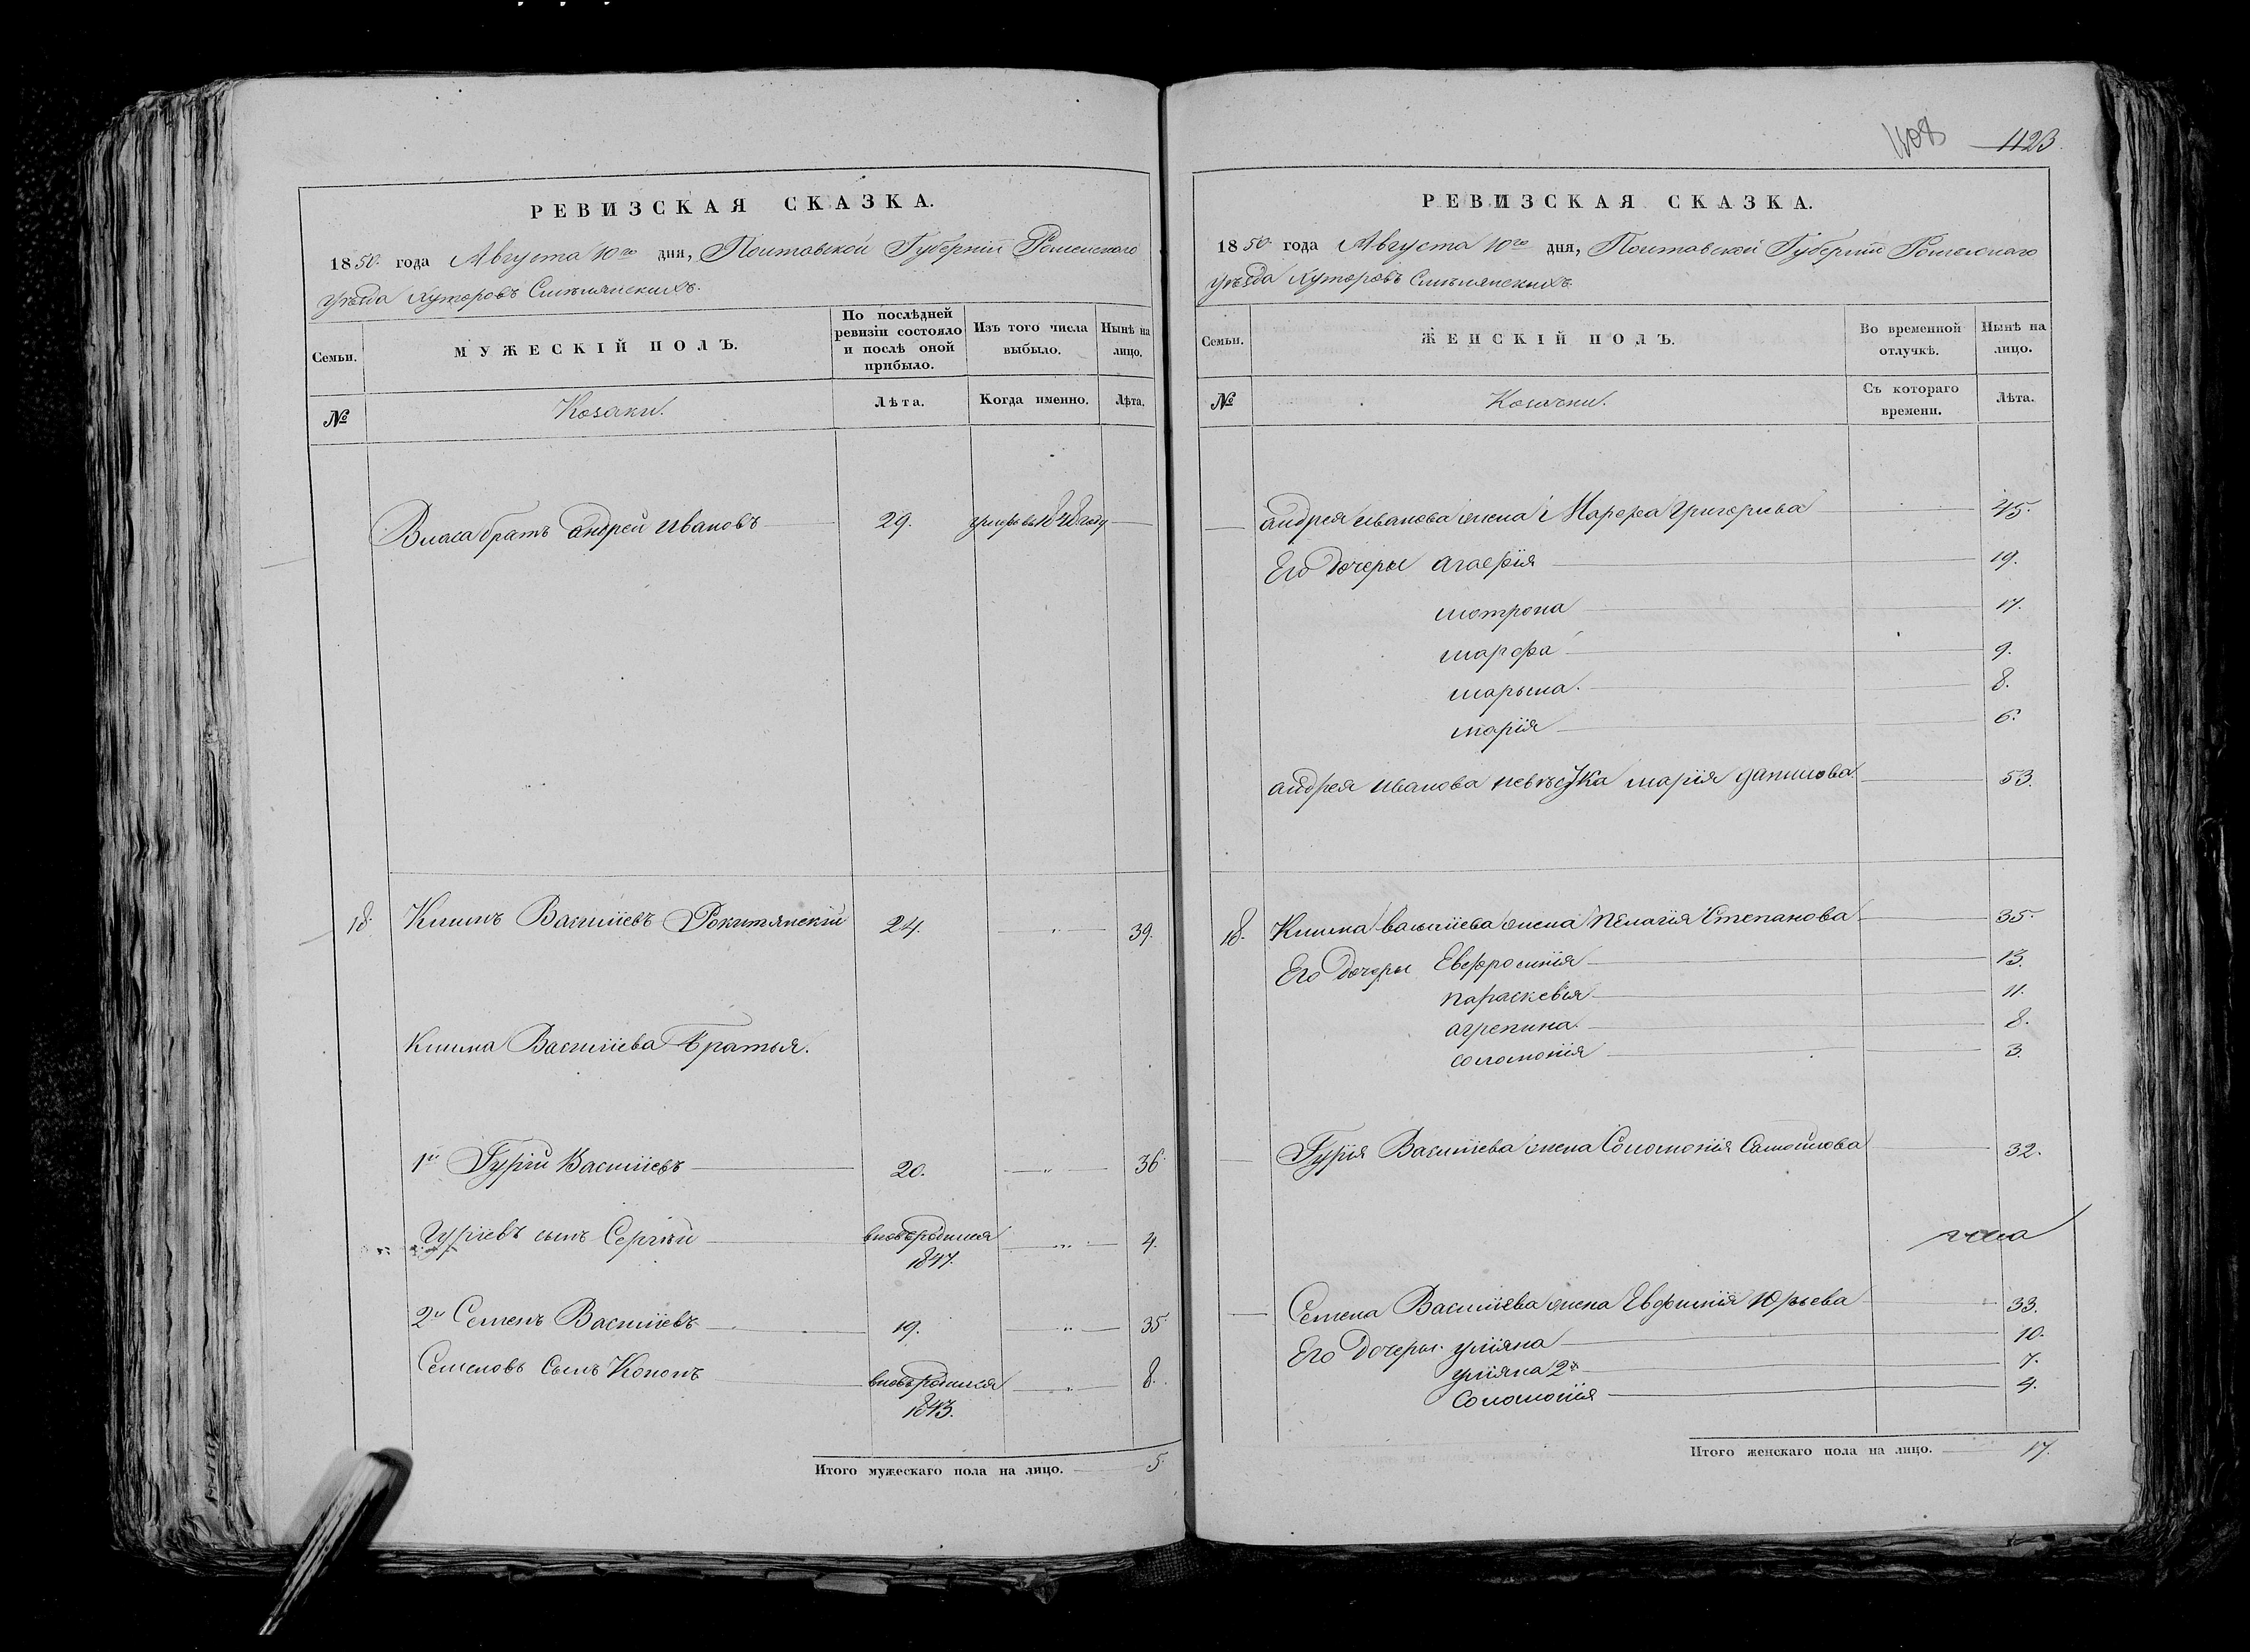 РЕВИЗСКАЯ СКАЗКА.
1850. года Августа 10го дня, Полтавской Губерніи Роменскаго
уѣзда Хуторовъ Смѣлянскихъ.
Семьи.
МУЖЕСКІЙ ПОЛЪ.
По послѣдней ревизіи состояло и послѣ оной прибыло.
Изъ того числа выбыло.
Нынѣ на лицо.
№
Козаки.
Лѣта.
Когда именно.
Лѣта.
Власа братъ андрей Ивановъ 29. году
18. Климъ Васіліевъ Рокитянскій 24. " 39.
Клима Василіева Братья.
1й Гурій Василіевъ 20. " 36.
Гуріевъ сынъ Сергѣй вновь родился 1847. " 4.
2й Семенъ Василіевъ 19. " 35.
Семеновъ Сынъ Кононъ вновь родился 1843. " 8.
Итого мужескаго пола на лицо. 5.
1108 1123.
РЕВИЗСКАЯ СКАЗКА.
1850. года Августа 10го дня, Полтавской Губерніи Роменскаго
уѣзда Хуторовъ Смѣлянскихъ.
Семьи.
ЖЕНСКІЙ ПОЛЪ.
Во временной отлучкѣ.
Нынѣ на лицо.
№
Козачки.
Съ котораго времени.
Лѣта.
андрея Иванова жена Марфа Григорьва 45.
Его дочеры агафія 19.
мотрона 17.
марфа 9.
марына. 8.
марія 6.
андрея Иванова невѣстка марія данилова. 53.
18. Клима василіева жена Пелагія Степанова 35.
Его дочеры Евфросинія 13.
параскевія 11.
агрепина. 8.
соломонія 3.
Гурія Василіева жена Соломонія Самойлова 32.
Семена Василіева жена Евфимія Юрьева 33.
Его дочеры. уліяна 10.
уліяна 2я 7.
Соломонія 4.
Итого женскаго пола на лицо. 17.